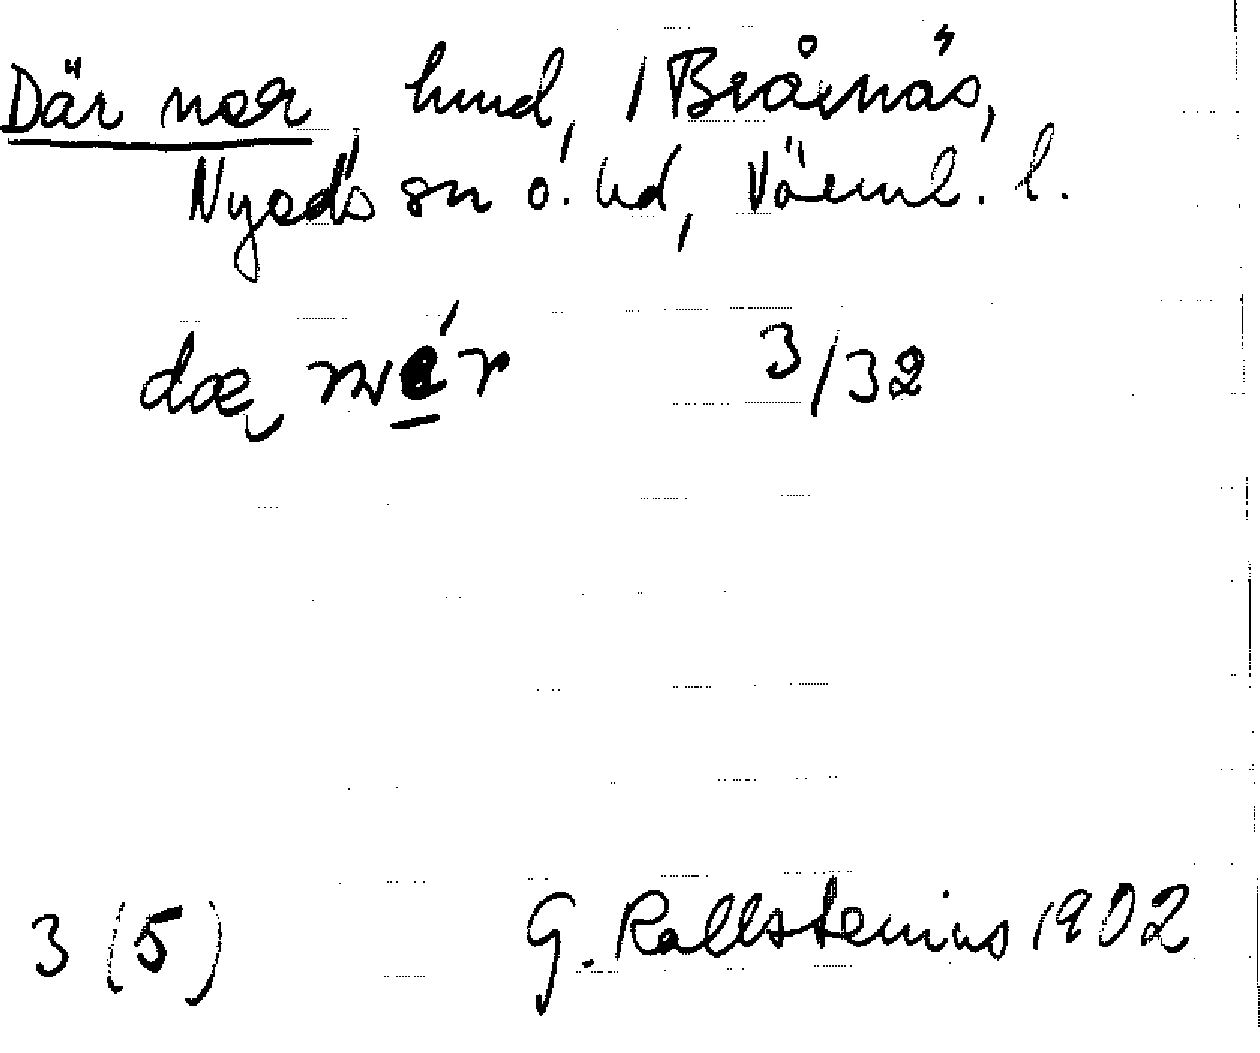 Där nor, hmd, i Bråtnäs,
Nyeds sn ö. hd, Värml. l.
3/32
3 (5) G. Kallstenius 1902